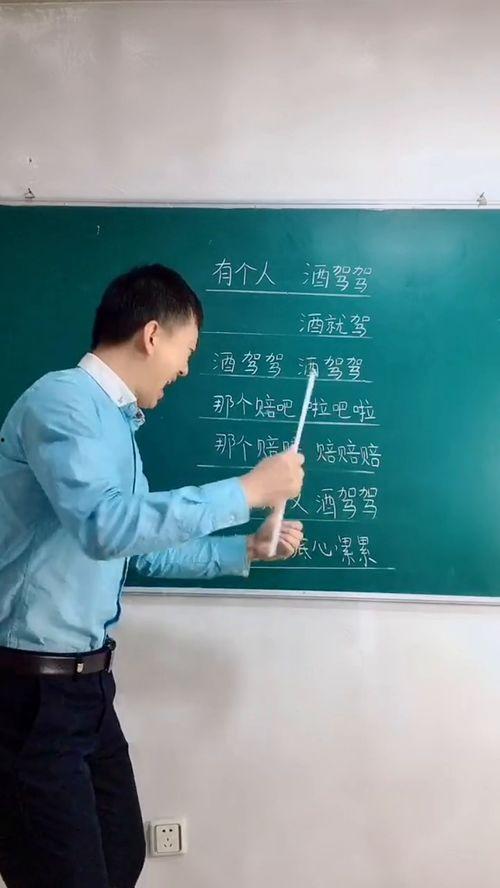 有个人 酒驾驾
酒就驾
酒驾驾 酒驾驾
那个赔吧 啦吧啦
那个赔 赔赔赔
又 酒驾驾
底心漯累